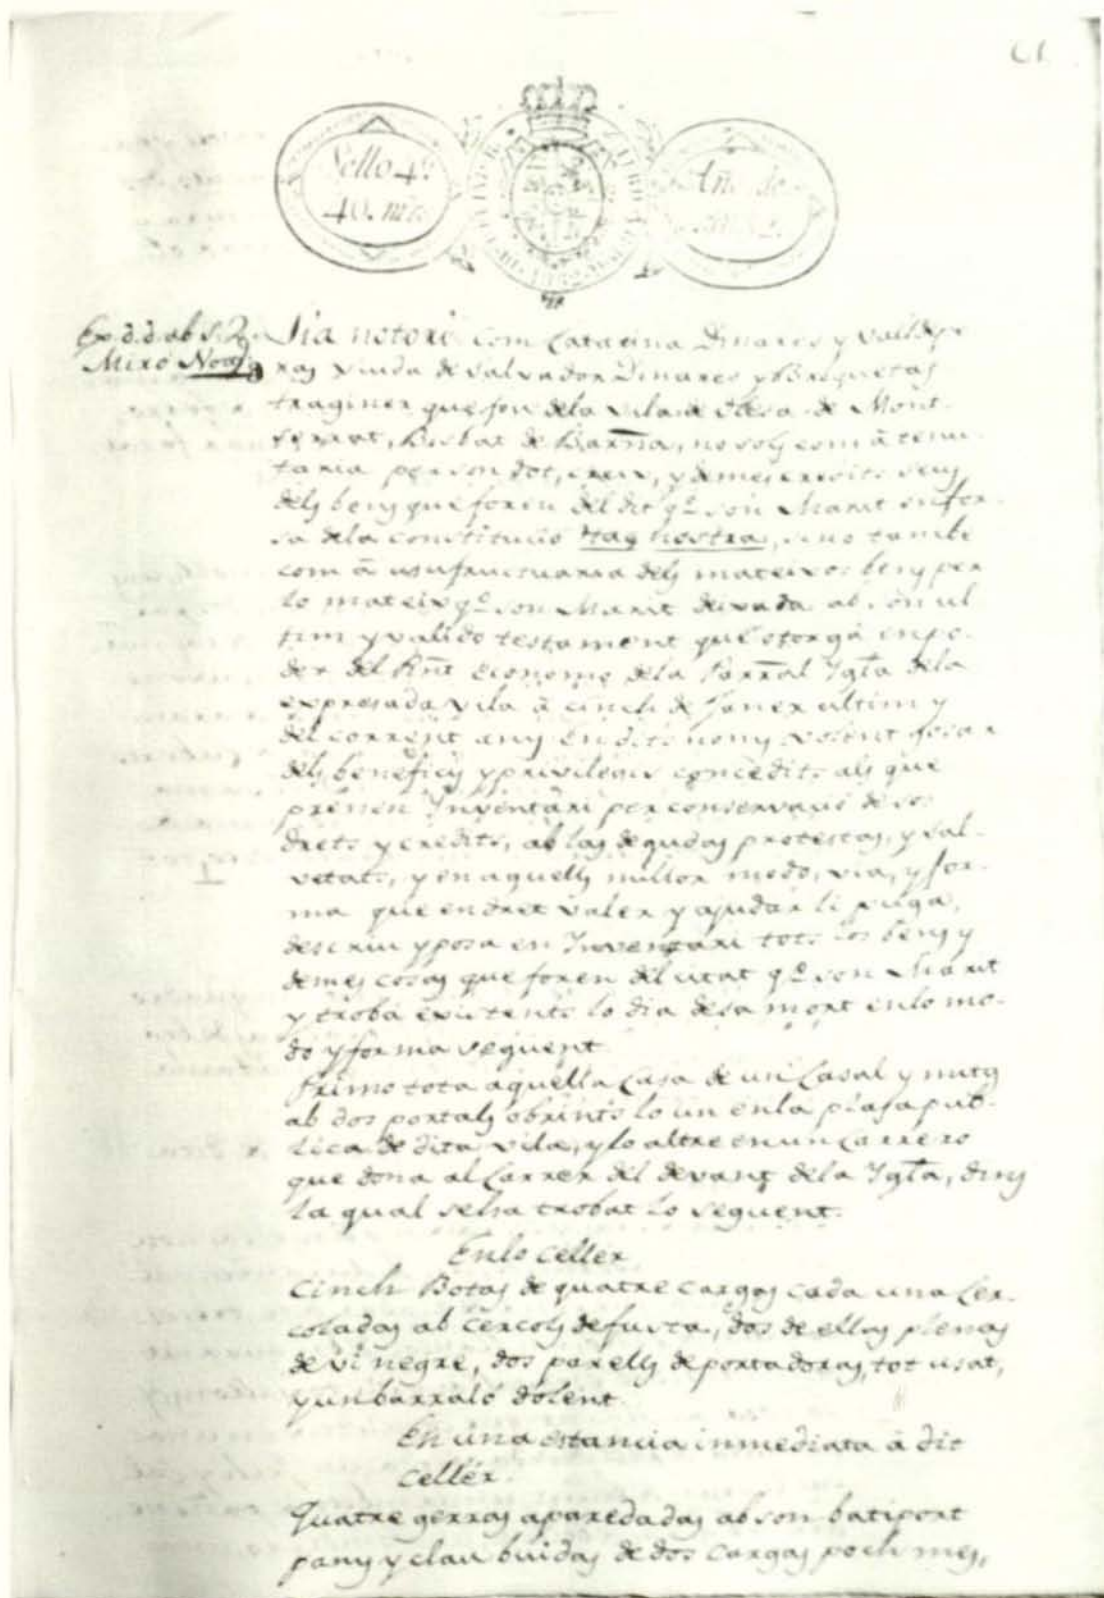 Sello 4º
40. mrs
Año de
Ex. d. d. ab S. 2º
Miró Notº
Sia notori com Catarina Dinares y Valldep-
ras Viuda de Salvador Dinares y Briquetas
traginer que fou dela Vila de Olesa de Mont-
serrat, Bisbat de Barnā, no sols com á tenu-
taria per son dot, creix, y demes credits seus
dels bens que foren del dit qº son Marit en for-
sa dela constitució Haq nostra, sino tambe
com á usufructuaria dels mateixos bens per
lo mateix qº son Marit deixada ab son ul-
tim y valido testament que otorgá en po-
der del Rnt Economo dela Parral Ygla dela
expresada Vila á cinch de Janer ultim y
del corrent any en dits noms volent gosar
dels beneficis y privilegis concedits als que
prenen Inventari per conservació de sos
drets y credits, ab las degudas protestas, y sal-
vetats, y en aquell millor modo, via, y for-
ma que en dret valer y ajudar li puga,
descriu y posa en Inventari tots los bens y
demes cosas que foren del citat qº son Marit
y trobá existents lo dia de sa mort en lo mo-
do y forma seguent.
Primo tota aquella Casa de un Casal y mitg
ab dos portals obrints lo un en la plasa pub-
lica de dita vila, y lo altre en un Carrero
que dona al Carrer del devant dela Ygla, dins
la qual se ha trobat lo seguent.
En lo Celler
Cinch Botas de quatre cargas cada una Cer-
coladas ab cercols de fusta, dos de ellas plenas
de vi negre, dos parells de portadoras, tot usat,
y un barraló dolent.
En una estancia inmediata á dit
Celler.
Quatre gerras aparedadas ab son batiport
pany y clau buidas de dos cargas poch mes,